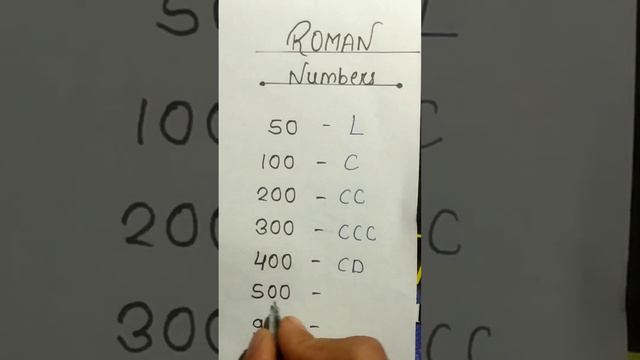 ROMAN
Numbers
50 - L
100 - C
200 - CC
300 - CCC
400 - CD
500 -